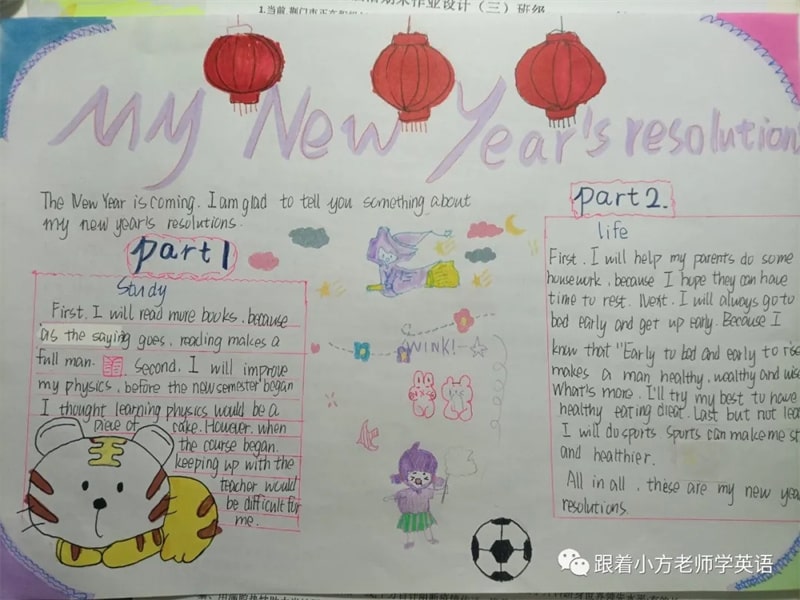 1.当前
作业设计（三）班级
My New Year's resolution
The New Year is coming. I am glad to tell you something about
my new year's resolutions.
part1
Study
First. I will read more books. because
as the saying goes, reading makes a
full man. Second, I will improve
my physics. before the new semester began
I thought learning physics would be a
piece of cake. However. when
the course began.
keeping up with the
teacher would
be difficult for
me.
WINK!
part2.
life
First. I will help my parents do some
housework, because I hope they can have
time to rest. Next. I will always go to
bed early and get up early. Because I
know that "Early to bed and early to rise
makes a man healthy, wealthy and wise
What's more. I'll try my best to have
healthy eating diet. Last but not lea
I will do sports sports can make me st
and healthier.
All in all, these are my new yea
resolutions.
跟着小方老师学英语